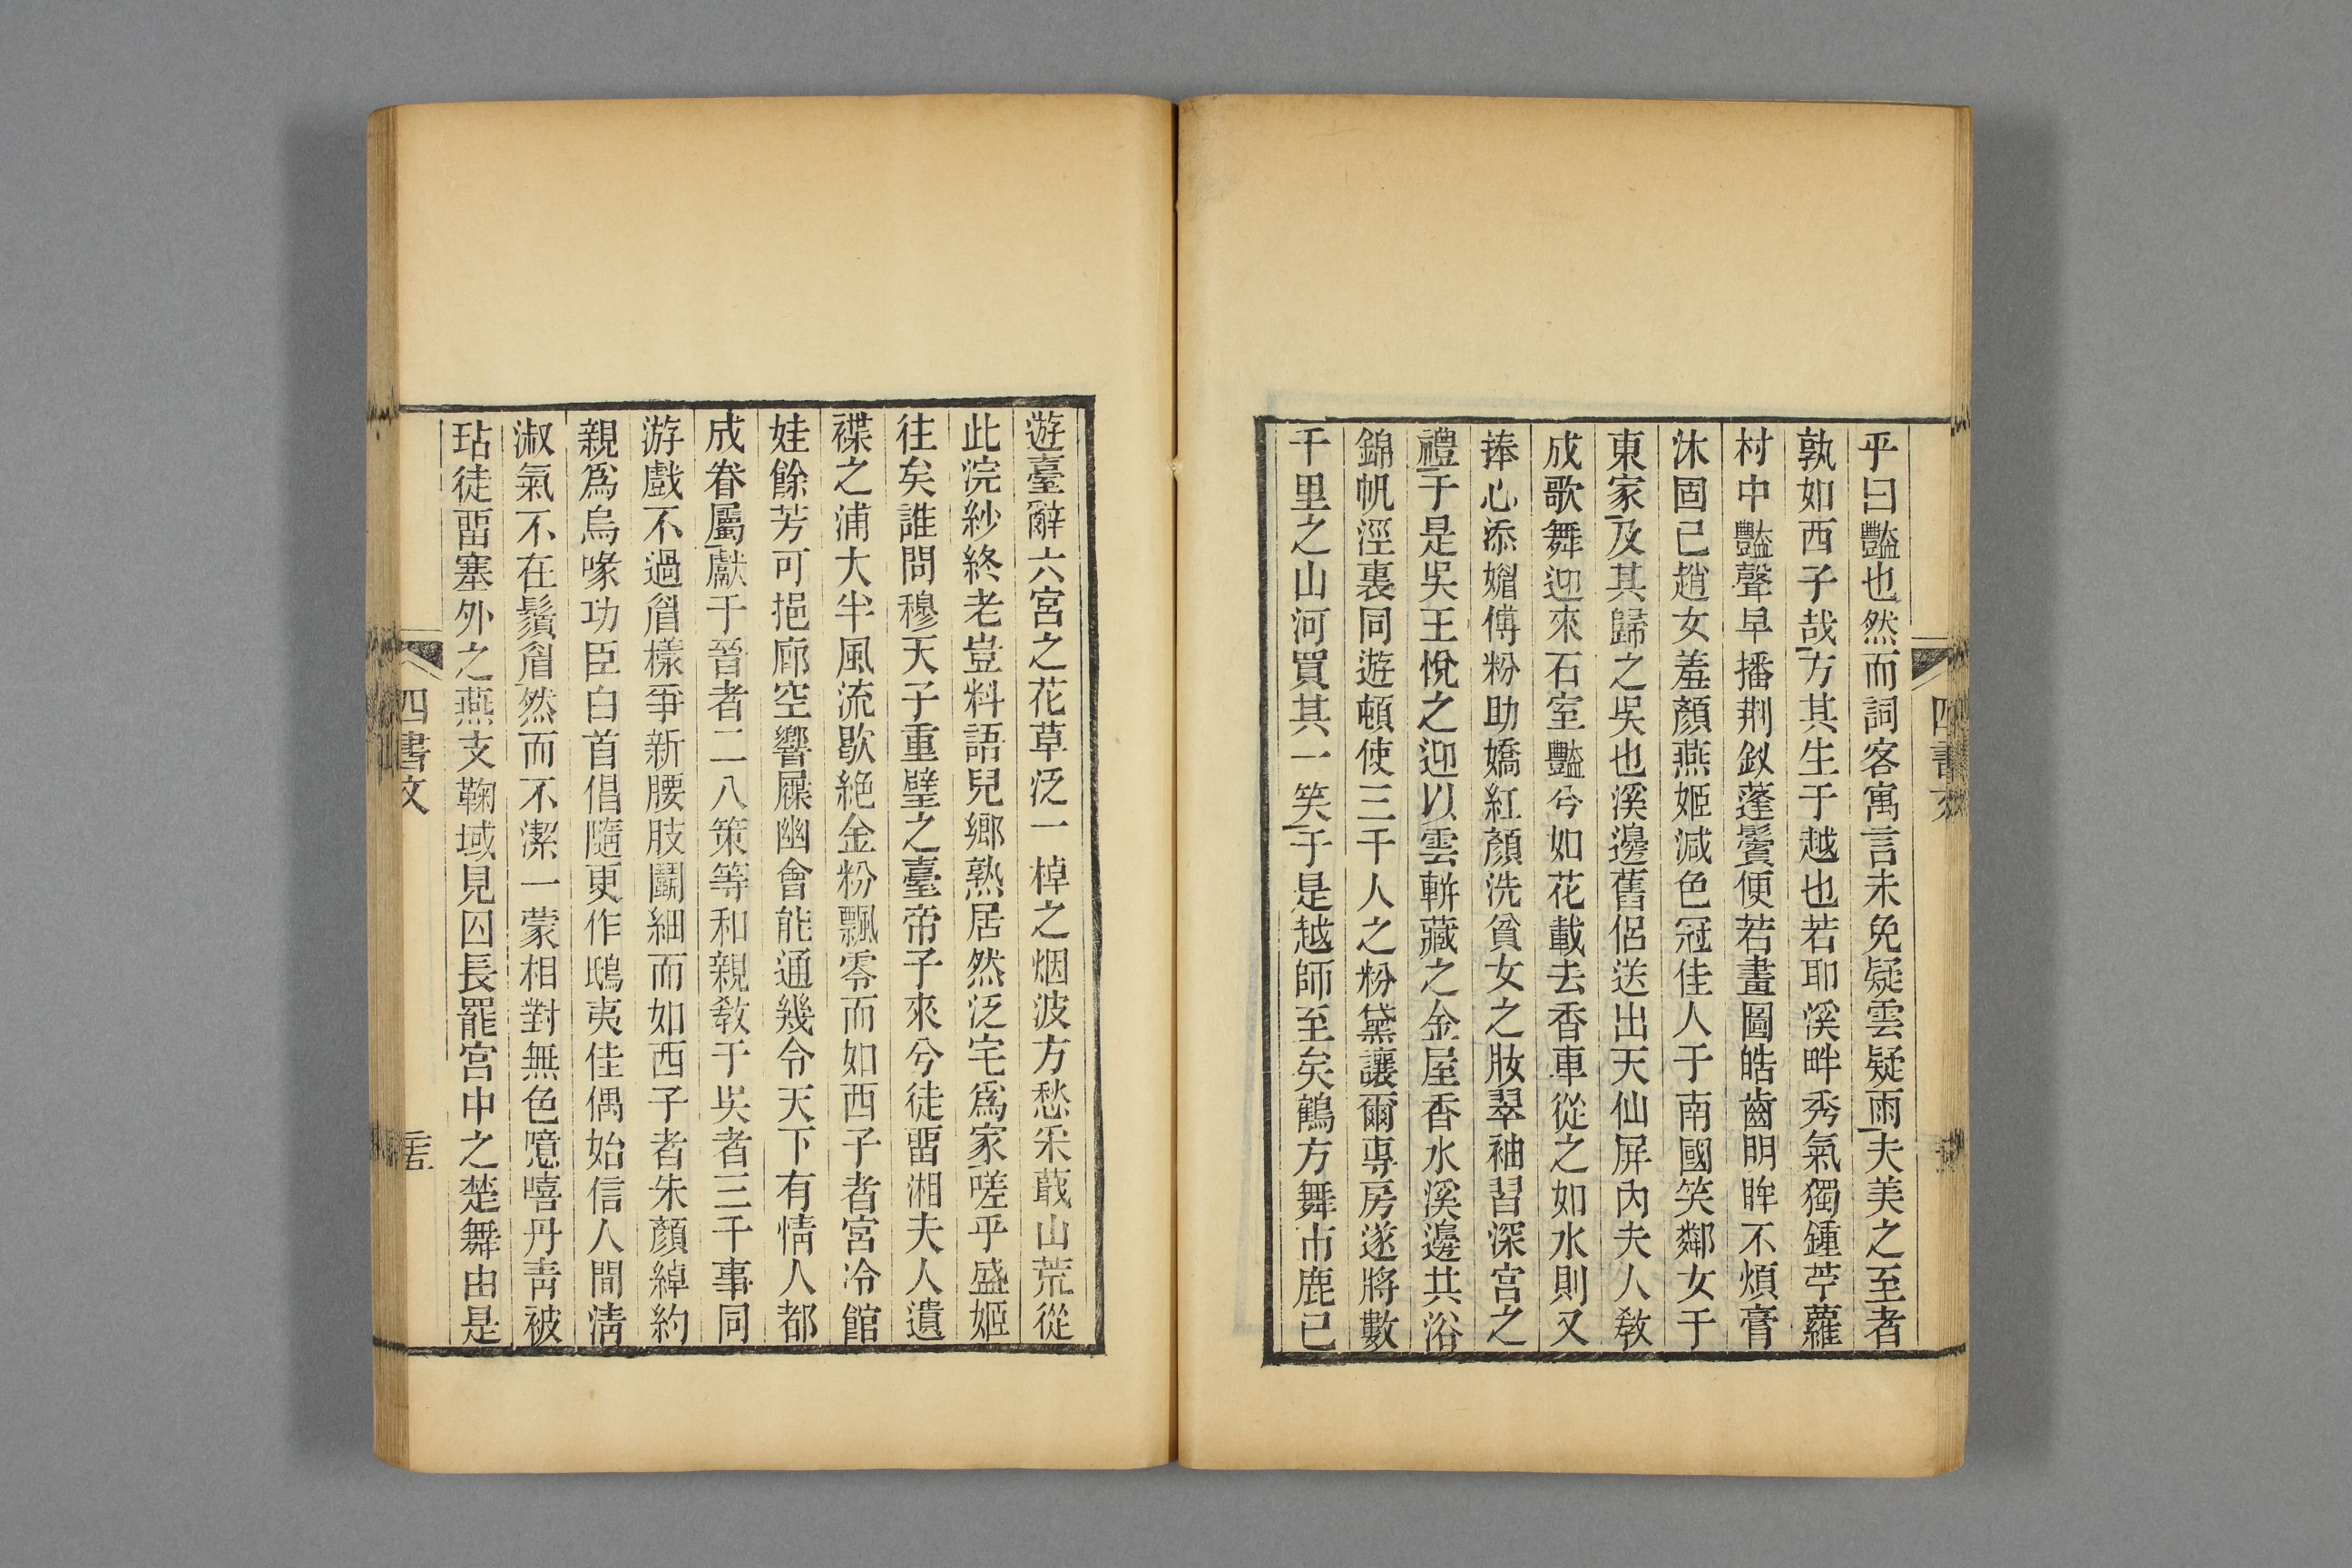 乎曰豔也然而詞客寓言未免疑雲疑雨夫美之至者
孰如西子哉方其生于越也若耶溪畔秀氣獨鍾苧蘿
村中豔聲早播荆釵蓬鬢便若畫圖皓齒明眸不煩膏
沐固已趙女羞顏燕姬減色冠佳人于南國笑鄰女于
東家及其歸之吳也溪邊舊侶送出天仙屏內夫人敎
成歌舞迎來石室豔兮如花載去香車從之如水則又
捧心添媚傅粉助嬌紅顏洗貧女之妝翠袖習深宮之
禮于是吳王悅之迎以雲輧藏之金屋香水溪邊共浴
錦帆涇裏同遊頓使三千人之粉黛讓爾專房遂將數
千里之山河買其一笑于是越師至矣鶴方舞市鹿已
四書文
遊臺辭六宮之花草泛一棹之烟波方愁采蕺山荒從
此浣紗終老豈料語兒鄉熟居然泛宅爲家嗟乎盛姬
往矣誰問穆天子重璧之臺帝子來兮徒畱湘夫人遺
褋之浦大半風流歇絕金粉飄零而如西子者宮冷館
娃餘芳可挹廊空響屧幽會能通幾令天下有情人都
成眷屬獻于晉者二八策等和親敎于吳者三千事同
游戲不過眉樣爭新腰肢鬭細而如西子者朱顏綽約
親爲烏喙功臣白首倡隨更作鴟夷佳偶始信人間淸
淑氣不在鬚眉然而不潔一蒙相對無色噫嘻丹靑被
玷徒畱塞外之燕支鞠域見囚長罷宮中之楚舞由是
四書文